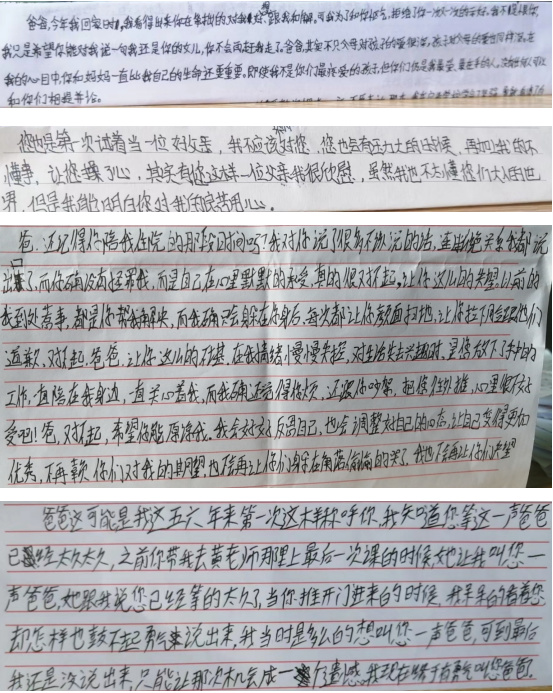 爸爸,今年我回家时,我看得出来你在集极的对我好,跟我和解,可我为了和你怄气,拒绝了你一次又一次的示好,我不是恨你
我只是希望你能对我说一句我还是你的女儿,你不会再赶我走了,爸爸,其实不只父母对孩子的爱很深,孩子对父母的爱也同样深,在
我的心目中你和妈妈一直比我自己的生命还重要,即使我不是你们最疼爱的孩子,但你们仍是我最爱,最在乎的人,没有任何人可以
和你们相提并论。
您也是第一次试着当一位好父亲,我不应该对您,您也会有压力大的时候,再加我的不
懂事,让您操了心,其实有您这样一位父亲我很欣慰,虽然我也不太懂您们大人的世
界,但是我能明白你对我的良苦用心。
爸,还记得你陪我住院的那段时间吗?我对你说了很多不该说的话,连断绝关系我都说
出口了,而你确没有怪罪我,而是自己在心里默默的承受,真的很对不起,让你这么的失望,以前的
我到处惹事,都是你帮我解决,而我确只会躲在你身后,每次都让你颜面扫地,让你拉下脸给他们
道歉,对不起,爸爸,让你这么的
在我情绪慢慢失控,对生活失去兴趣时,是您放下了手中的
工作,一直陪在我身边,一直关心着我,而我确还觉得你烦,还跟你吵架,把你往外推,心里很不好
受吧!爸,对不起,希望你能原谅我。我会好好反省自己,也会调整好自己的心态,让自己变得更加
优秀,不再辜负你们对我的期望,也不会再让你们身在角落偷偷的哭了,我也不会再让你们失望
爸爸这可能是我这五六年来第一次这样称呼你,我知道您等这一声爸爸
已经太久太久,之前你带我去黄老师那里上最后一次课的时候,她让我叫您一
声爸爸,她跟我说您已经等的太久了,当你推开门进来的时候,我呆呆的看着您
却怎样也鼓不起勇气来说出来,我当时是多么的想叫您一声爸爸,可到最后
我还是没说出来,只能让那次机会成一个遗憾,我现在终于有勇气叫您爸爸